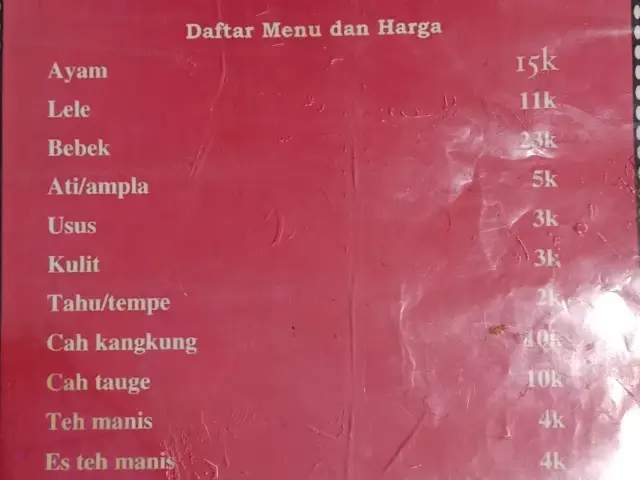 Daftar Menu dan Harga
Ayam 15k
Lele 11k
Bebek 23k
Ati/ampla 5k
Usus 3k
Kulit 3k
Tahu/tempe 2k
Cah kangkung 10k
Cah tauge 10k
Teh manis 4k
Es teh manis 4k